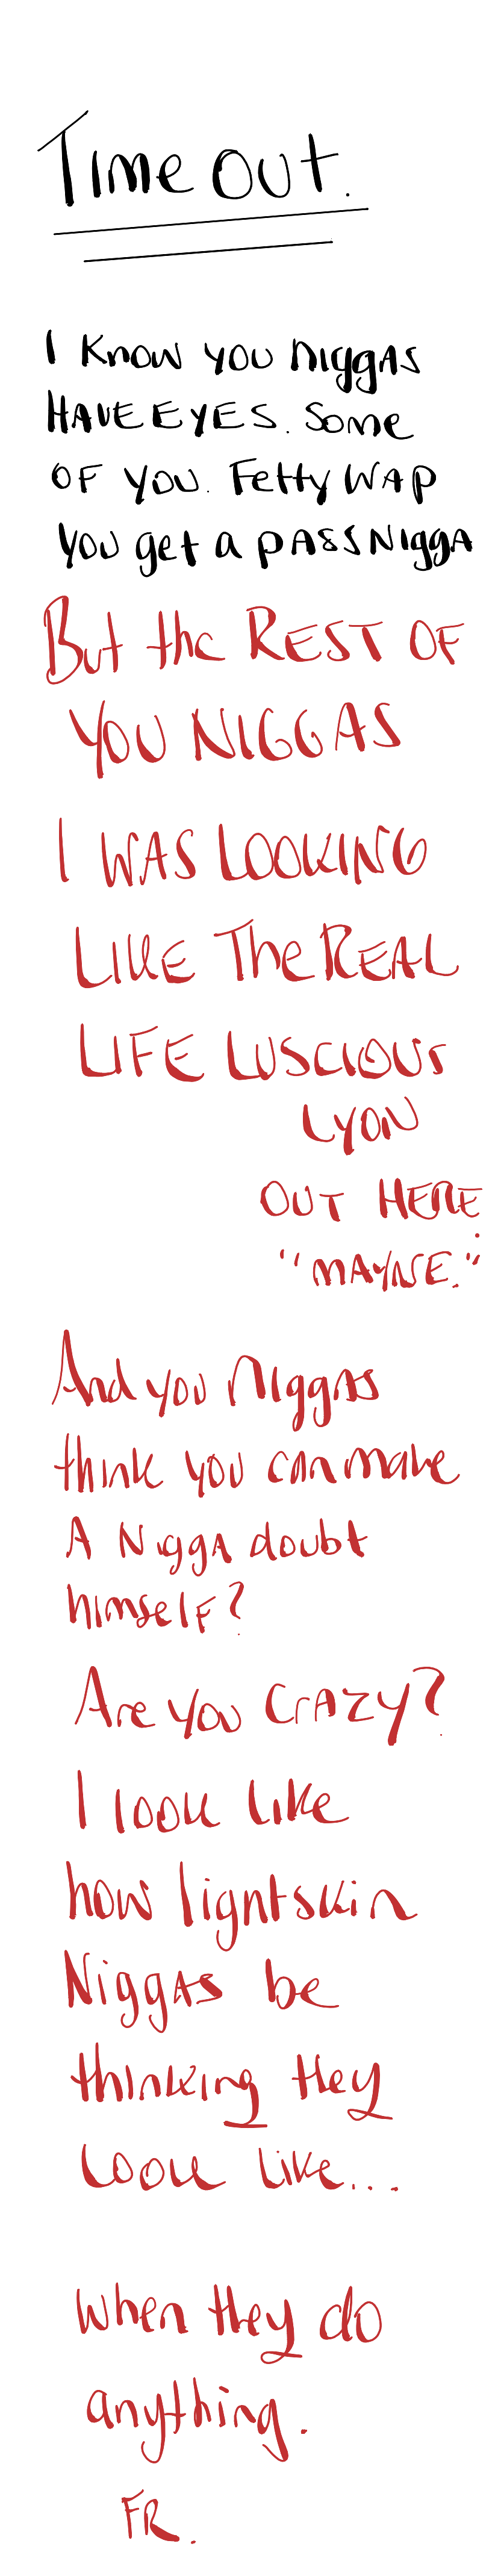 Time out.
I Know you niggas
HAVE EYES. Some
OF you. Fetty WAP
you get a pASS NiggA
But the REST OF
YOU NIGGAS
I WAS LOOKING
LIKE The REAL
LIFE LUSCIOUS
LYON
OUT HERE
"MAYNE."
And you niggas
think you can make
A NiggA doubt
himself?
Are you CrAZy?
I look like
how lightskin
NiggAs be
thinking they
look like...
when they do
anything.
FR.